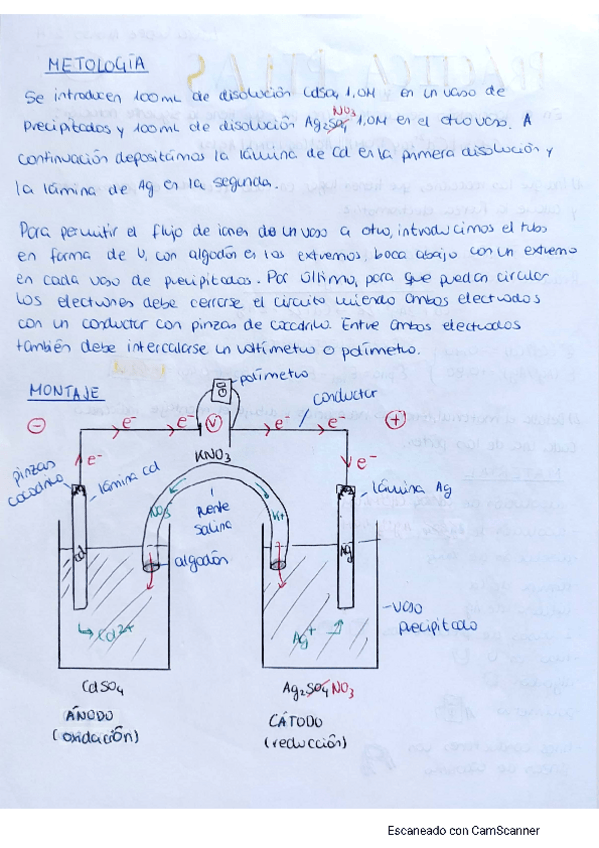 METOLOGÍA
Se introducen 100mL de disolución CdSO4 1,0M en un vaso de
NO3
precipitados y 100mL de disolución Ag2SO4 1,0M en el otro vaso. A
continuación depositamos la lámina de Cd en la primera disolución y
la lámina de Ag en la segunda.
Para permitir el flujo de iones de un vaso a otro, introducimos el tubo
en forma de U, con algodón es los extremos, boca abajo con un extremo
en cada vaso de precipitados. Por último, para que puedan circular
los electrones debe cerrarse el circuito uniendo ambos electrodos
con un conductor con pinzas de cocodrilo. Entre ambos electrodos
también debe intercalarse un voltímetro o polímetro.
MONTAJE
polímetro
conductor
- e- e- V e- e- +
KNO3
pinzas cocodrilo
e-
lámina Cd
e-
lámina Ag
NO3-
puente salino
K+
Cd
algodón
Ag
Cd2+
Ag+
vaso precipitado
CdSO4
Ag2SO4 NO3
ÁNODO
CÁTODO
(oxidación)
(reducción)
Escaneado con CamScanner